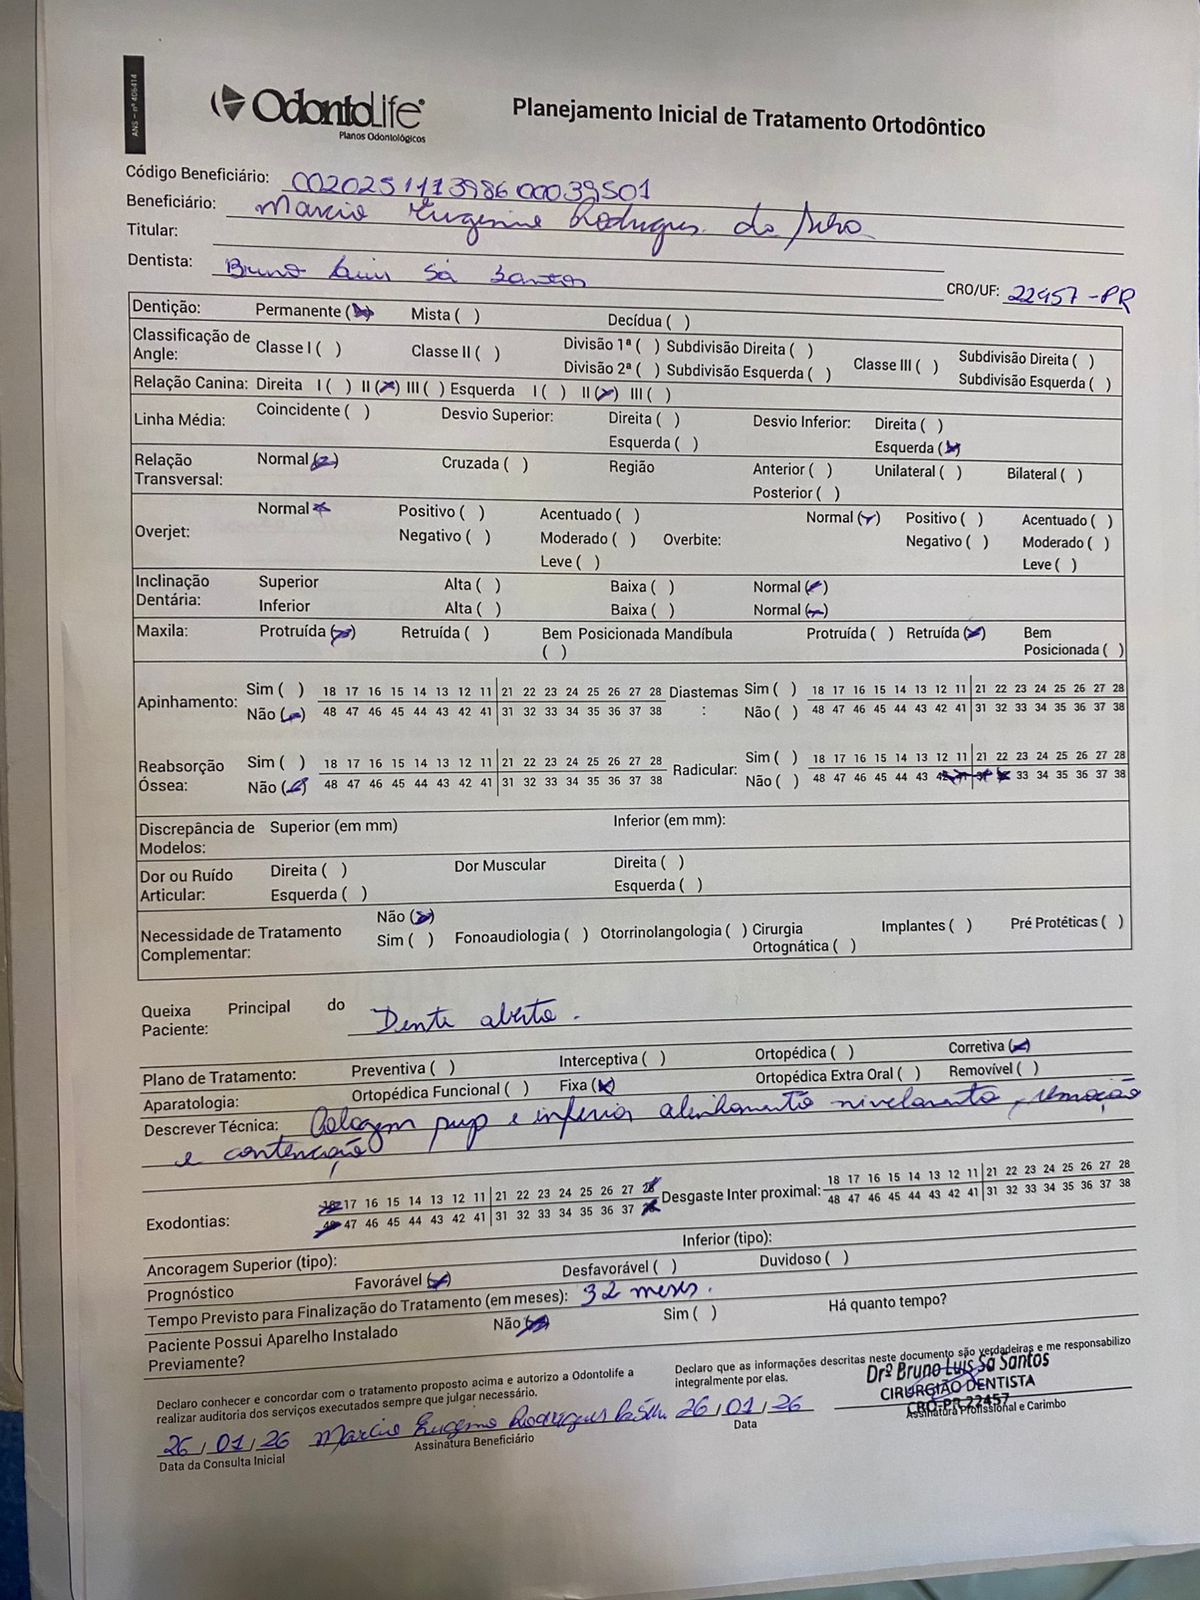 ANS - nº 406414
OdontoLife®
Planos Odontológicos
Planejamento Inicial de Tratamento Ortodôntico
Código Beneficiário: 002025111398600039501
Beneficiário: Marcio Eugenio Rodrigues da Silva
Titular:
Dentista: Bruno Luis Sá Santos
CRO/UF: 22457-PR
Dentição: Permanente (x) Mista ( ) Decídua ( )
Classificação de Angle: Classe I ( ) Classe II ( ) Divisão 1ª ( ) Subdivisão Direita ( ) Divisão 2ª ( ) Subdivisão Esquerda ( ) Classe III ( ) Subdivisão Direita ( ) Subdivisão Esquerda ( )
Relação Canina: Direita I ( ) II (x) III ( ) Esquerda I ( ) II (x) III ( )
Linha Média: Coincidente ( ) Desvio Superior: Direita ( ) Esquerda ( ) Desvio Inferior: Direita ( ) Esquerda (x)
Relação Transversal: Normal (x) Cruzada ( ) Região Anterior ( ) Posterior ( ) Unilateral ( ) Bilateral ( )
Overjet: Normal (x) Positivo ( ) Negativo ( ) Acentuado ( ) Moderado ( ) Leve ( ) Overbite: Normal (x) Positivo ( ) Negativo ( ) Acentuado ( ) Moderado ( ) Leve ( )
Inclinação Dentária: Superior Alta ( ) Baixa ( ) Normal (x)
Inferior Alta ( ) Baixa ( ) Normal (x)
Maxila: Protruída (x) Retruída ( ) Bem Posicionada ( ) Mandíbula Protruída ( ) Retruída (x) Bem Posicionada ( )
Apinhamento: Sim ( ) 18 17 16 15 14 13 12 11 21 22 23 24 25 26 27 28 Diastemas: Sim ( ) 18 17 16 15 14 13 12 11 21 22 23 24 25 26 27 28
Não (x) 48 47 46 45 44 43 42 41 31 32 33 34 35 36 37 38 Não ( ) 48 47 46 45 44 43 42 41 31 32 33 34 35 36 37 38
Reabsorção Óssea: Sim ( ) 18 17 16 15 14 13 12 11 21 22 23 24 25 26 27 28 Radicular: Sim ( ) 18 17 16 15 14 13 12 11 21 22 23 24 25 26 27 28
Não (x) 48 47 46 45 44 43 42 41 31 32 33 34 35 36 37 38 Não ( ) 48 47 46 45 44 43 42 41 31 32 33 34 35 36 37 38
Discrepância de Modelos: Superior (em mm) Inferior (em mm):
Dor ou Ruído Articular: Direita ( ) Esquerda ( ) Dor Muscular Direita ( ) Esquerda ( )
Necessidade de Tratamento Complementar: Não (x) Sim ( ) Fonoaudiologia ( ) Otorrinolangologia ( ) Cirurgia Ortognática ( ) Implantes ( ) Pré Protéticas ( )
Queixa Principal do Paciente: Dente aberto.
Plano de Tratamento: Preventiva ( ) Interceptiva ( ) Ortopédica ( ) Corretiva (x)
Aparatologia: Ortopédica Funcional ( ) Fixa (x) Ortopédica Extra Oral ( ) Removível ( )
Descrever Técnica: Colagem sup e inferior alinhamento nivelamento, remoção
e contenção
Exodontias: 18 17 16 15 14 13 12 11 21 22 23 24 25 26 27 28 Desgaste Inter proximal: 18 17 16 15 14 13 12 11 21 22 23 24 25 26 27 28
48 47 46 45 44 43 42 41 31 32 33 34 35 36 37 38 48 47 46 45 44 43 42 41 31 32 33 34 35 36 37 38
Ancoragem Superior (tipo): Inferior (tipo):
Prognóstico Favorável (x) Desfavorável ( ) Duvidoso ( )
Tempo Previsto para Finalização do Tratamento (em meses): 32 meses.
Paciente Possui Aparelho Instalado Previamente? Não (x) Sim ( ) Há quanto tempo?
Declaro conhecer e concordar com o tratamento proposto acima e autorizo a Odontolife a
realizar auditoria dos serviços executados sempre que julgar necessário.
Declaro que as informações descritas neste documento são verdadeiras e me responsabilizo
integralmente por elas.
Drº Bruno Luis Sá Santos
CIRURGIÃO DENTISTA
CRO-PR 22457
26/01/26 Marcio Eugenio Rodrigues da Silva 26/01/26
Data da Consulta Inicial Assinatura Beneficiário Data Assinatura Profissional e Carimbo